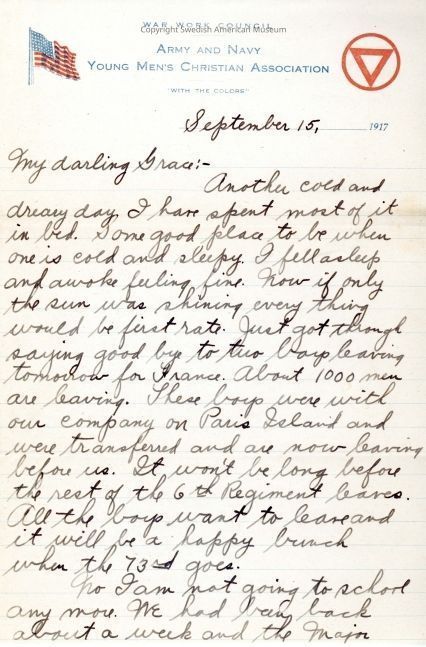 WAR WORK COUNCIL
Copyright Swedish American Museum
ARMY AND NAVY
YOUNG MEN'S CHRISTIAN ASSOCIATION
"WITH THE COLORS"
September 15, 1917
My darling Grace:-
Another cold and
dreary day. I have spent most of it
in bed. Some good place to be when
one is cold and sleepy. I fell asleep
and awoke feeling fine. Now if only
the sun was shining every thing
would be first rate. Just got through
saying good bye to two boys leaving
tomorrow for France. About 1000 men
are leaving. These boys were with
our company on Paris Island and
were transferred and are now leaving
before us. It won't be long before
the rest of the 6th Regiment leaves.
All the boys want to leave and
it will be a happy bunch
when the 73rd goes.
No I am not going to school
any more. We had been back
about a week and the Major